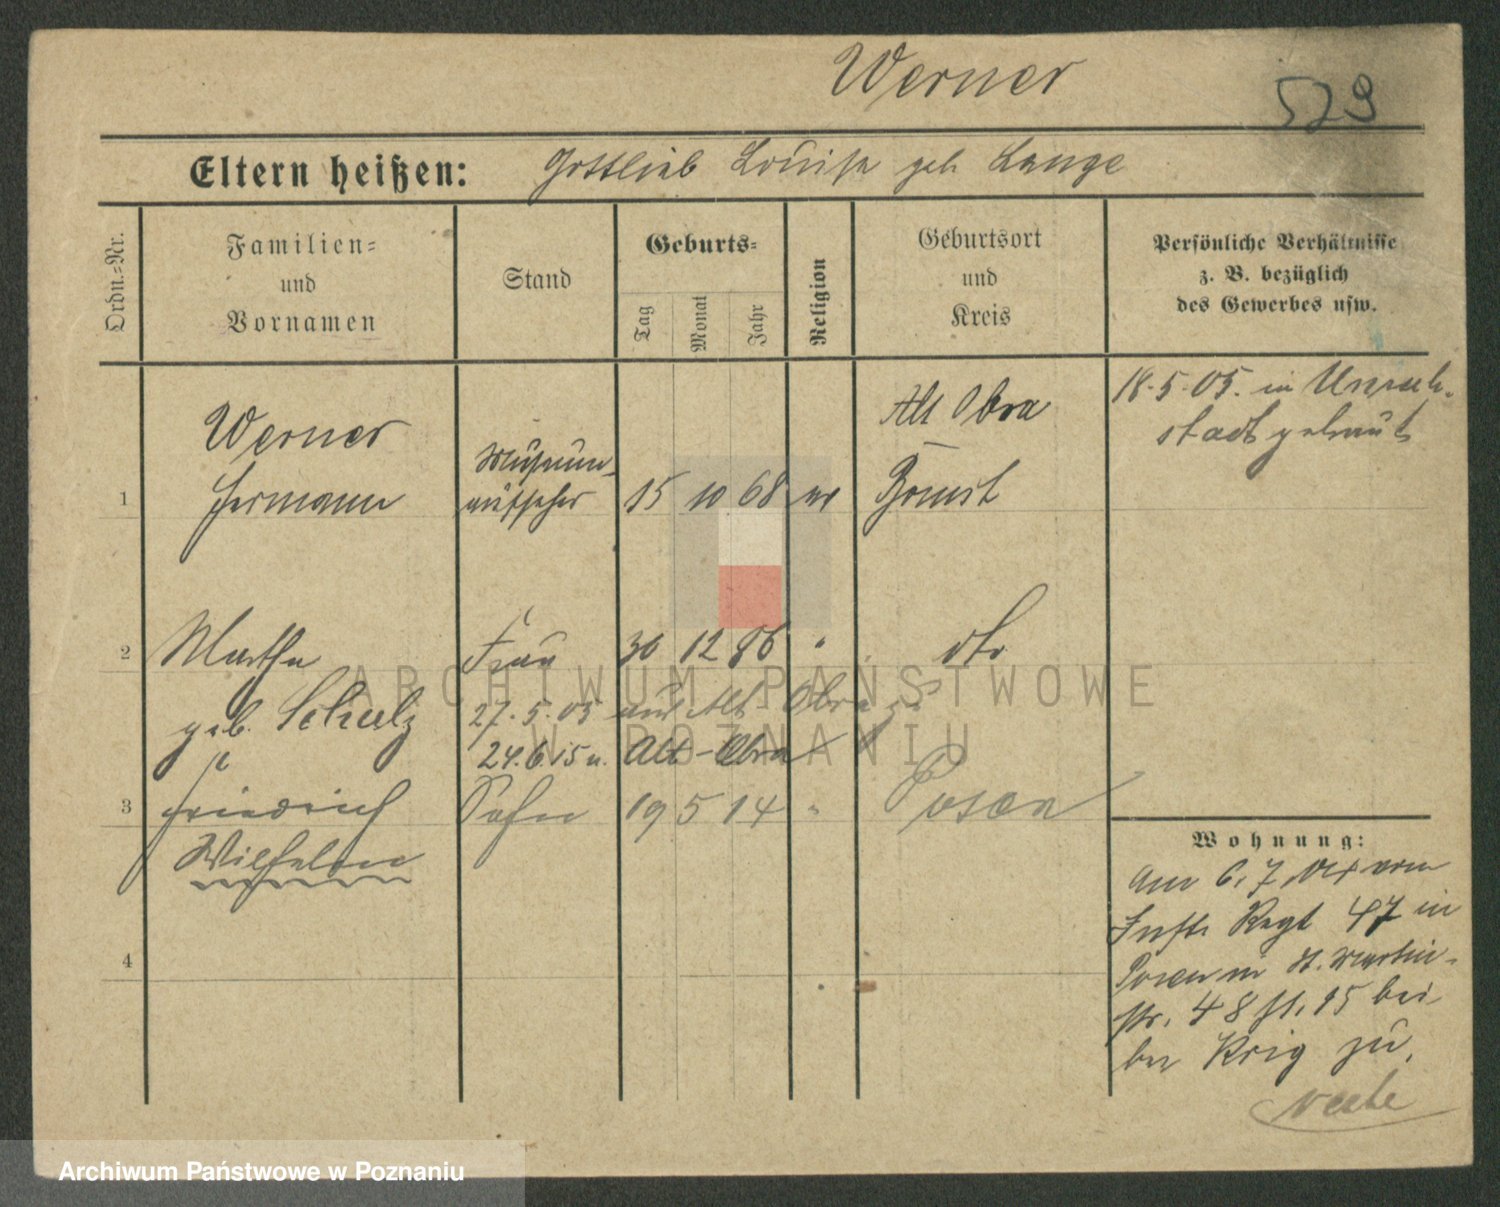 Werner
529
Eltern heißen: Gottlieb Louise geb Lange
Ordn.-Nr.
Familien-
und
Vornamen
Stand
Geburts-
Tag
Monat
Jahr
Religion
Geburtsort
und
Kreis
Persönliche Verhältnisse
z. B. bezüglich
des Gewerbes usw.
18.5.05. in Unruh-
stadt getraut
Werner
Alt Obra
Museum-
1 Hermann aufseher 15 10 68 ev Bomst
2 Martha Frau 30 12 86 " dto
geb. Schulz 27.5.05 aus Alt-Obra
24.6.15 n. Alt-Obra
3 Friedrich Sohn 19 5 14 " Posen
Wilhelm
4
Wohnung:
Am 6.7. vom
Inft. Regt 47 in
Posen St. Martin-
str. 48 15 bei
Krig zu.
ARCHIWUM PAŃSTWOWE
W POZNANIU
Archiwum Państwowe w Poznaniu